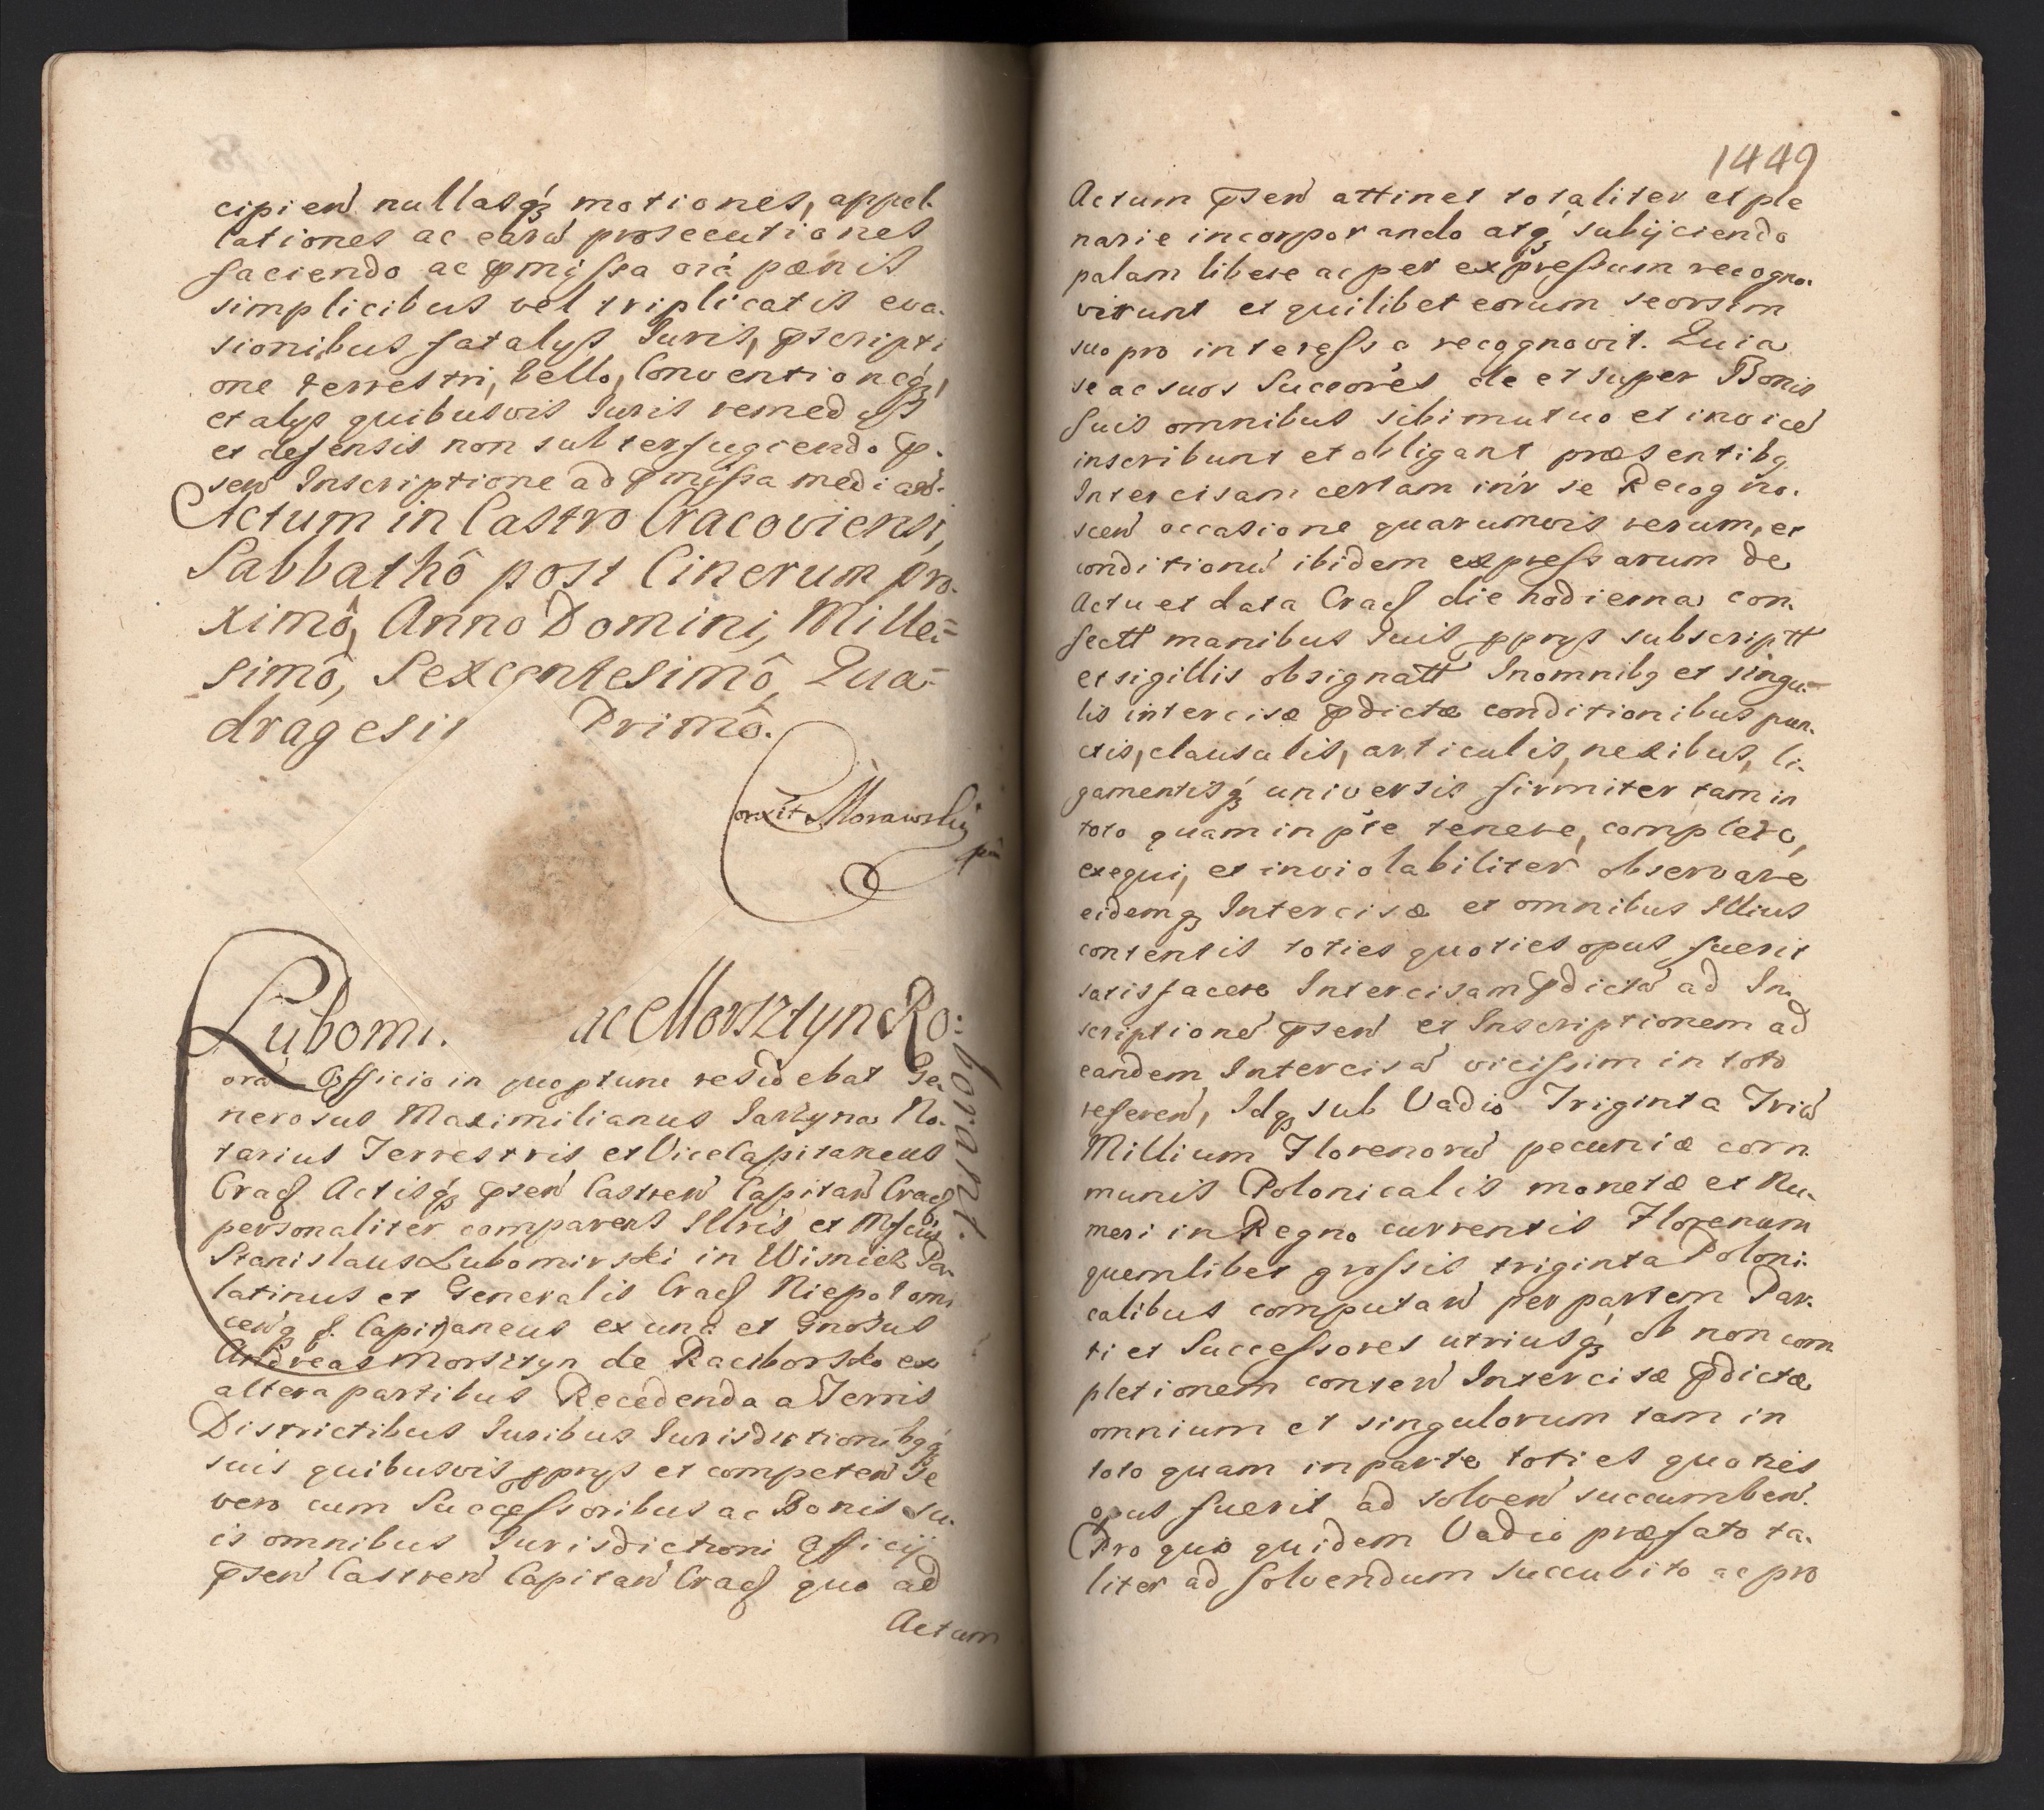 cipień nullasq́ꝫ motiones, appel-
lationes ac earũ prosecutiones
faciendo ac p̄missa oīa pænis
simplicibus vel triplicatis eva-
sionibus fatalijs Iuris, p̄scripti
one terrestri, bello, Conventioneq́ꝫ,
et alijs quibusvis Iuris remedijs
et defensis non subterfugiendo p̄-
seń Inscriptione ad p̄missa mediań.
Actum in Castro Cracoviensi,
Sabbathô post Cinerum pro-
ximô, Anno Domini, Mille-
simô, Sexcentesimô, Qua-
dragesi Primô.
Corxit Morawski
Lubomi. ac Morsztyn Ro:
borant.
orã Officio in quo ptunc residebat Ge-
nerosus Maximilianus Iarzyna No-
tarius Terrestris et ViceCapitaneus
Cracſ. Actisq́ꝫ p̄seń Castreń Capitań Cracſ
personaliter comparens Illris et Mfcus
Stanislaus Lubomirski in Wisnicz Pa-
latinus et Generalis Cracſ Niepolomi
ceńq ſ. Capitaneus ex una et Gnosus
Andreas Morsztyn de Raciborsko ex
altera partibus Recedenda a Terris
Districtibus Iuribus Iurisdictionibqq́
suis quibusvis pprijs et competeń Se
vero cum Successoribus ac Bonis su-
is omnibus Iurisdictioni Officij
p̄seń Castreń Capitań Cracſ quo ad
Actum
1449
Actum p̄seń attinet totaliter et ple
narie incorporando atq́ꝫ subijciendo
palam libere ac per expressum recogno-
verunt et quilibet eorum seorsim
suo pro interesse recognovit. Quia
se ac suos Succores de et super Bonis
suis omnibus sibimutuo et invicẽ
inscribunt et obligant præsentibq
Intercisam certam intr se Recogno-
sceń occasione quarumvis rerum, et
conditionũ ibidem expressarum de
Actu et data Cracſ die hodierna con-
fectt manibus suis pprijs subscriptt
et sigillis obsignatt Inomnibq et singu-
lis intercisæ p̄dictæ conditionibus pun-
ctis, clausulis, articulis, nexibus, li-
gamentisq́ꝫ universis firmiter tam in
toto quam in pte tenere, complere,
exequi, et inviolabiliter observare
eidemqꝫ Intercisæ et omnibus Illius
contentis toties quoties opus fuerit
satisfacere Intercisam p̄dictã ad In-
scriptionẽ p̄seń et Inscriptionem ad
eandem Intercisã vicissim in toto
refereń, Idqꝫ sub Vadio Triginta Triũ
Millium Florenorũ pecuniæ com
munis Polonicalis monetæ et Nu-
meri in Regno currentis Florenum
quemlibet grossis triginta Poloni-
calibus computań per partem Par-
ti et Successores utriusq́ꝫ ob non com
pletionem conteń Intercisæ p̄dictæ
omnium et singulorum tam in
toto quam inparte toties quoties
opus fuerit ad solveń succumbeń.
Pro quo quidem Vadio præfato ta-
liter ad solvendum succubito ac pro